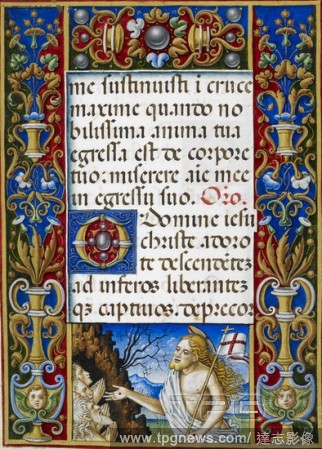 me sustinuisti i cruce
maxime quando no
bilissima anima tua
egressa est de corpore
tuo: miserere aīe mee
in egressu suo. Oro.
O Domine iesu
christe adoro
te descendētez
ad inferos liberantez
qz captiuos. deprecor
www.tpgnews.com/ 達志影像